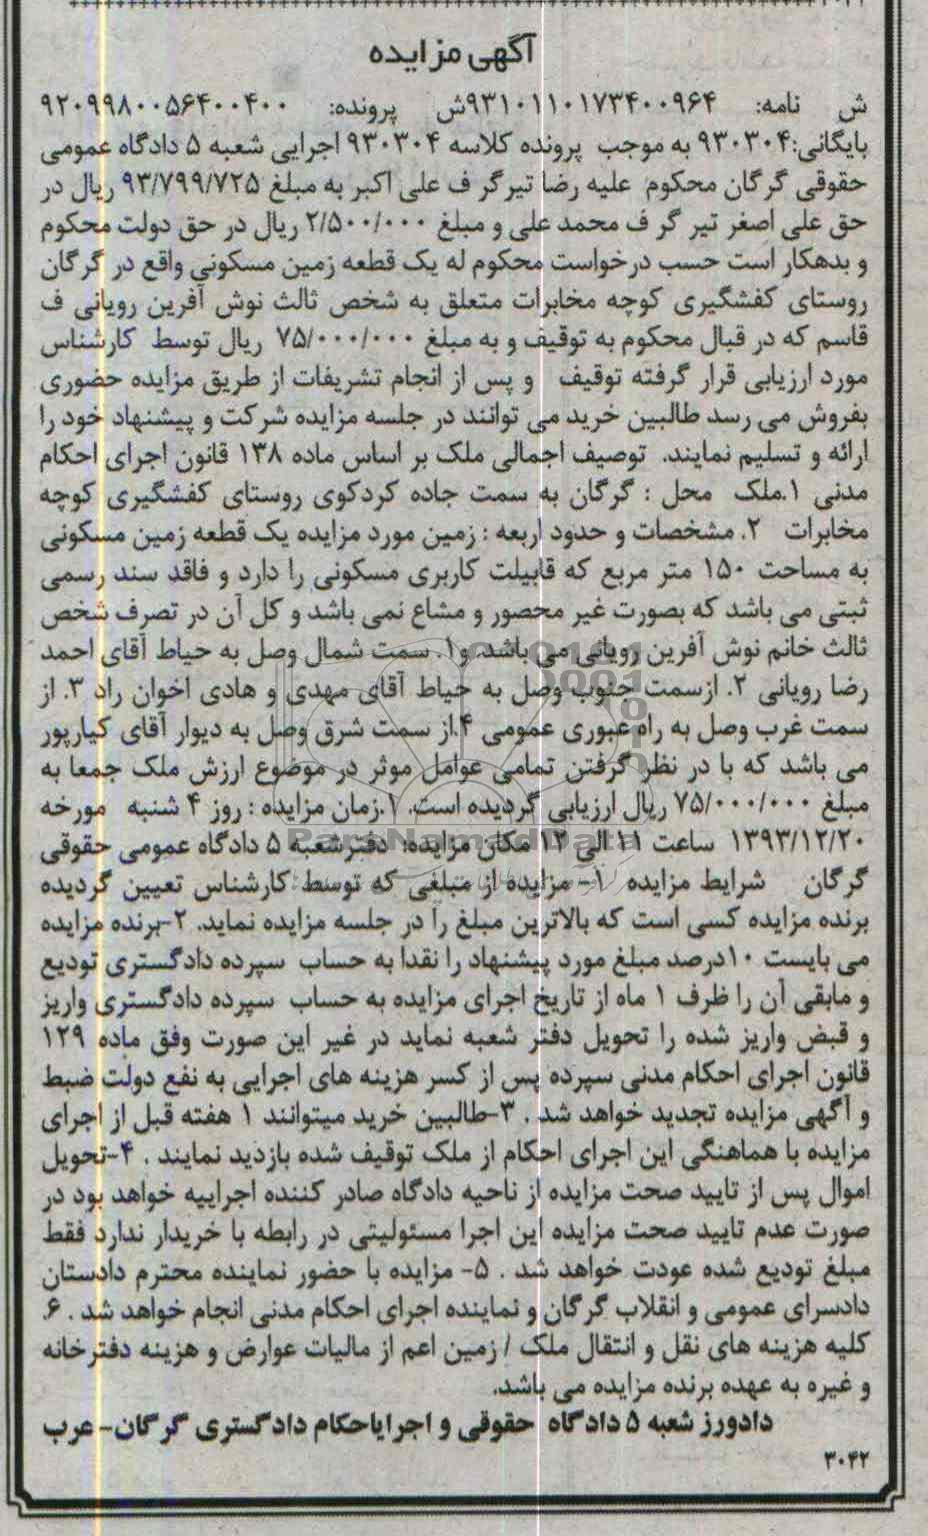 آگهی مزایده
ش نامه: ۹۳۱۰۱۱۰۱۷۳۴۰۰۹۶۴ش پرونده: ۹۲۰۹۹۸۰۰۵۶۴۰۰۴۰۰
بایگانی:۹۳۰۳۰۴ به موجب پرونده کلاسه ۹۳۰۳۰۴ اجرایی شعبه ۵ دادگاه عمومی
حقوقی گرگان محکوم علیه رضا تیرگر ف علی اکبر به مبلغ ۹۳/۷۹۹/۷۲۵ ریال در
حق علی اصغر تیر گر ف محمد علی و مبلغ ۲/۵۰۰/۰۰۰ ریال در حق دولت محکوم
و بدهکار است حسب درخواست محکوم له یک قطعه زمین مسکونی واقع در گرگان
روستای کفشگیری کوچه مخابرات متعلق به شخص ثالث نوش آفرین رویانی ف
قاسم که در قبال محکوم به توقیف و به مبلغ ۷۵/۰۰۰/۰۰۰ ریال توسط کارشناس
مورد ارزیابی قرار گرفته توقیف و پس از انجام تشریفات از طریق مزایده حضوری
بفروش می رسد طالبین خرید می توانند در جلسه مزایده شرکت و پیشنهاد خود را
ارائه و تسلیم نمایند. توصیف اجمالی ملک بر اساس ماده ۱۳۸ قانون اجرای احکام
مدنی ۱.ملک محل : گرگان به سمت جاده کردکوی روستای کفشگیری کوچه
مخابرات ۲. مشخصات و حدود اربعه : زمین مورد مزایده یک قطعه زمین مسکونی
به مساحت ۱۵۰ متر مربع که قابیلت کاربری مسکونی را دارد و فاقد سند رسمی
ثبتی می باشد که بصورت غیر محصور و مشاع نمی باشد و کل آن در تصرف شخص
ثالث خانم نوش آفرین رویانی می باشد. و۱. سمت شمال وصل به حیاط آقای احمد
رضا رویانی ۲. ازسمت جنوب وصل به حیاط آقای مهدی و هادی اخوان راد ۳. از
سمت غرب وصل به راه عبوری عمومی ۴.از سمت شرق وصل به دیوار آقای کیارپور
می باشد که با در نظر گرفتن تمامی عوامل موثر در موضوع ارزش ملک جمعا به
مبلغ ۷۵/۰۰۰/۰۰۰ ریال ارزیابی گردیده است. ۱.زمان مزایده : روز ۴ شنبه مورخه
۱۳۹۳/۱۲/۲۰ ساعت ۱۱ الی ۱۲ مکان مزایده: دفترشعبه ۵ دادگاه عمومی حقوقی
گرگان شرایط مزایده ۱- مزایده از مبلغی که توسط کارشناس تعیین گردیده
برنده مزایده کسی است که بالاترین مبلغ را در جلسه مزایده نماید. ۲-برنده مزایده
می بایست ۱۰درصد مبلغ مورد پیشنهاد را نقدا به حساب سپرده دادگستری تودیع
و مابقی آن را ظرف ۱ ماه از تاریخ اجرای مزایده به حساب سپرده دادگستری واریز
و قبض واریز شده را تحویل دفتر شعبه نماید در غیر این صورت وفق ماده ۱۲۹
قانون اجرای احکام مدنی سپرده پس از کسر هزینه های اجرایی به نفع دولت ضبط
و آگهی مزایده تجدید خواهد شد . ۳-طالبین خرید میتوانند ۱ هفته قبل از اجرای
مزایده با هماهنگی این اجرای احکام از ملک توقیف شده بازدید نمایند . ۴-تحویل
اموال پس از تایید صحت مزایده از ناحیه دادگاه صادر کننده اجراییه خواهد بود در
صورت عدم تایید صحت مزایده این اجرا مسئولیتی در رابطه با خریدار ندارد فقط
مبلغ تودیع شده عودت خواهد شد . ۵- مزایده با حضور نماینده محترم دادستان
دادسرای عمومی و انقلاب گرگان و نماینده اجرای احکام مدنی انجام خواهد شد . ۶.
کلیه هزینه های نقل و انتقال ملک / زمین اعم از مالیات عوارض و هزینه دفترخانه
و غیره به عهده برنده مزایده می باشد.
دادورز شعبه ۵ دادگاه حقوقی و اجرایاحکام دادگستری گرگان- عرب
۳۰۴۲